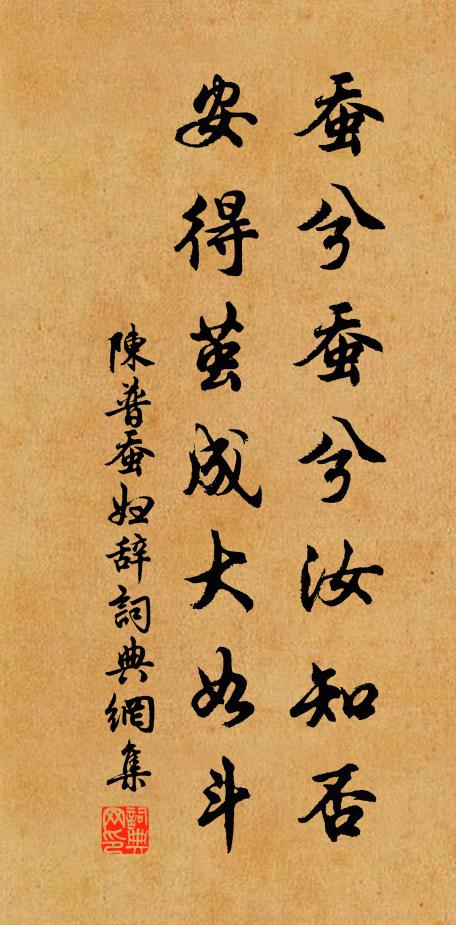 蚕兮蚕兮汝知否
安得茧成大如斗
陳普蚕妇辞詞典網集
詞典网印